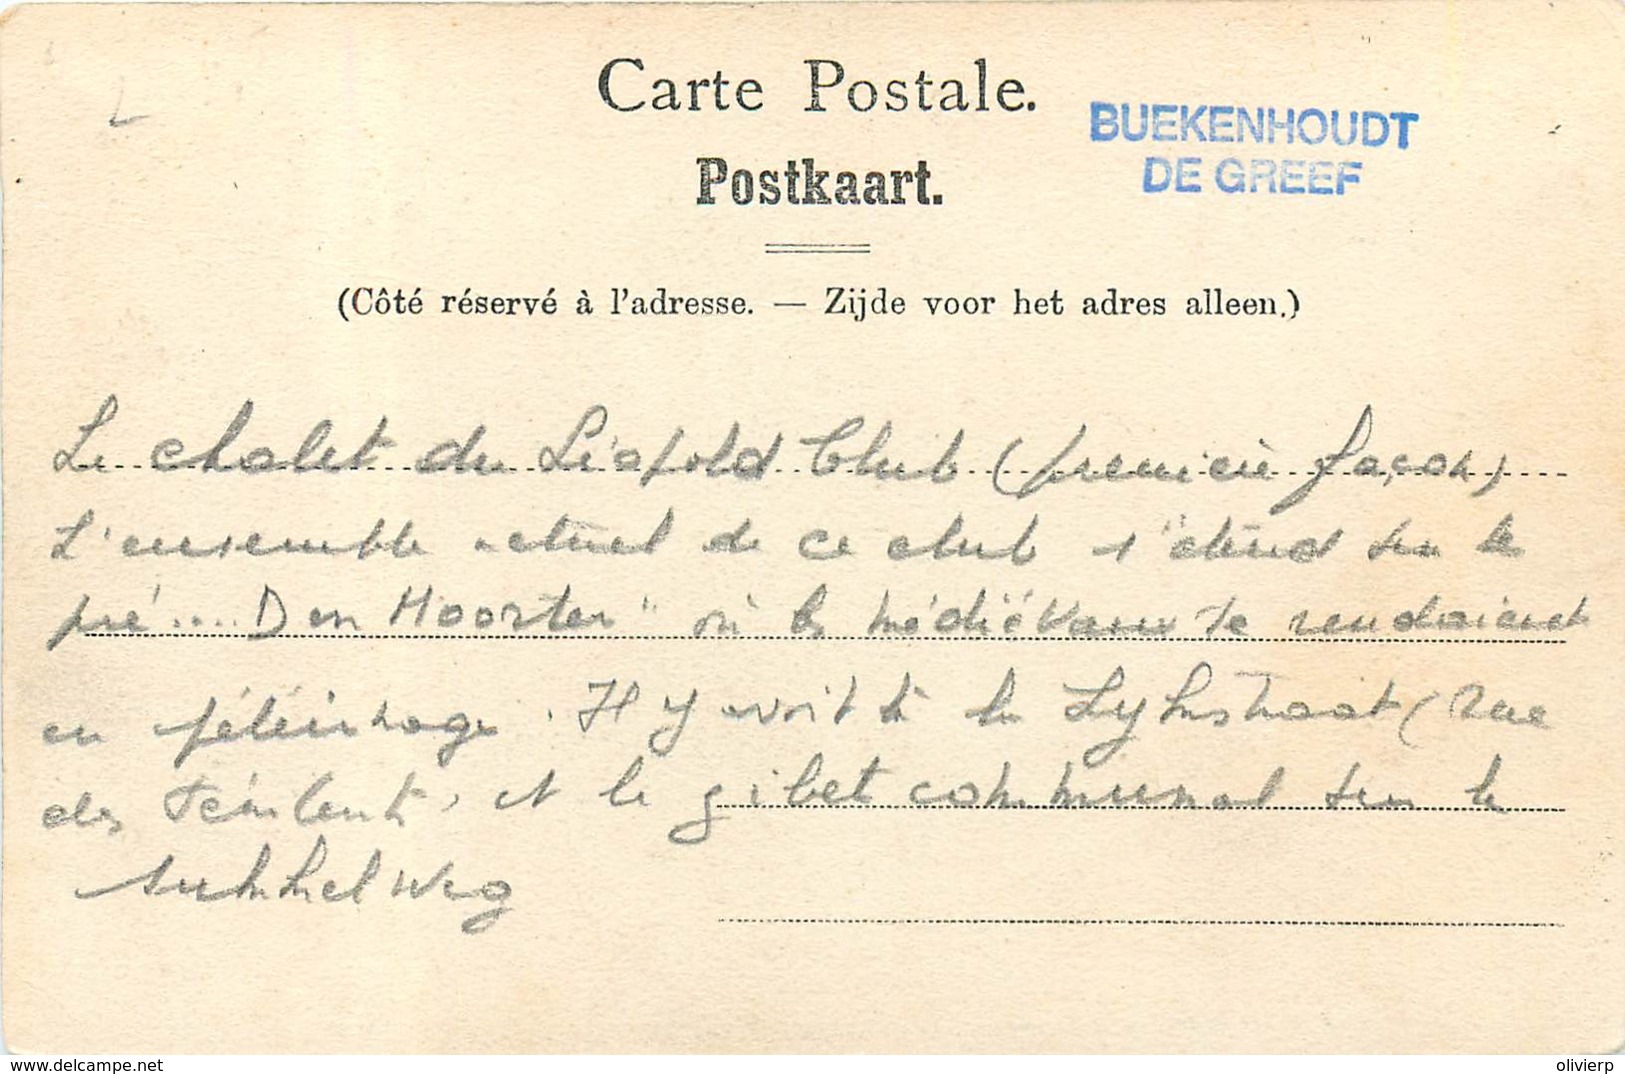 Carte Postale.
BUEKENHOUDT
DE GREEF
Postkaart.
(Côté réservé à l'adresse. — Zijde voor het adres alleen.)
Le chalet du Léopold Club (première façon)
L'ensemble actuel de ce club s'étend sur le
pré .... Den Hoorter" où les médiévaux se rendaient
en pélérinage. Il y avait la
des et le gibet communal sur le
delcampe.net
olivierp